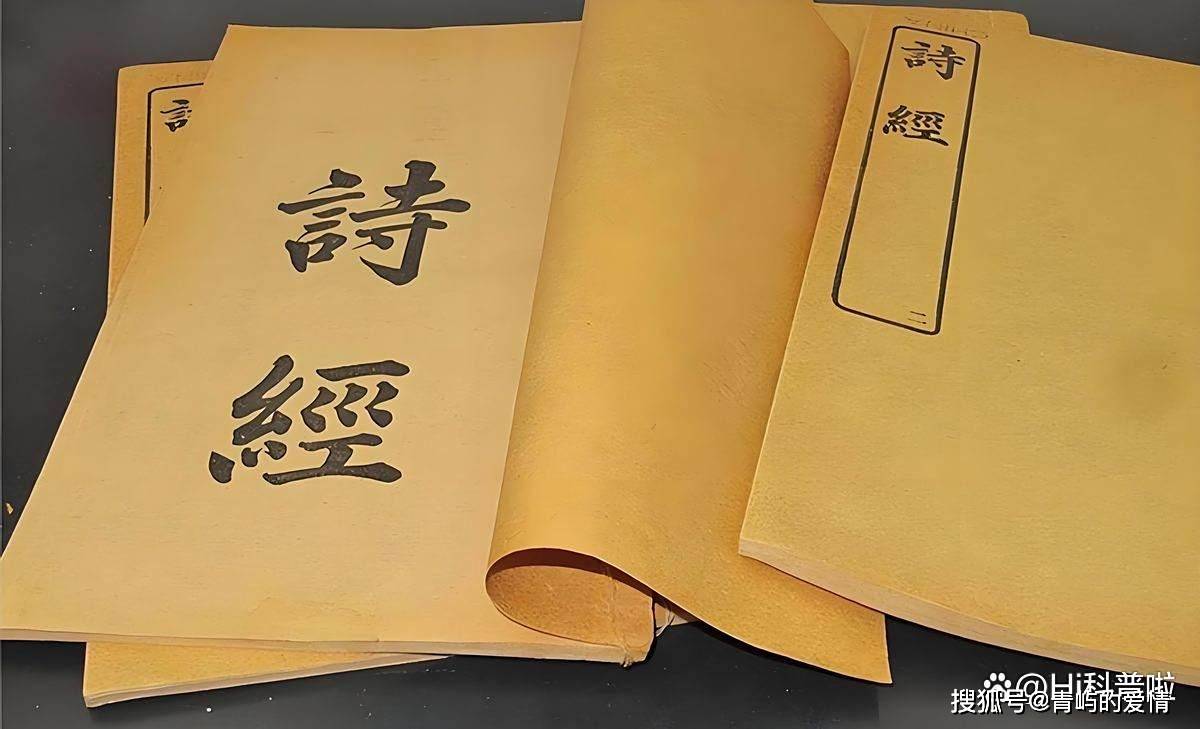 詩
經
詩
經
二
@Hi科普啦
搜狐号@青屿的爱情